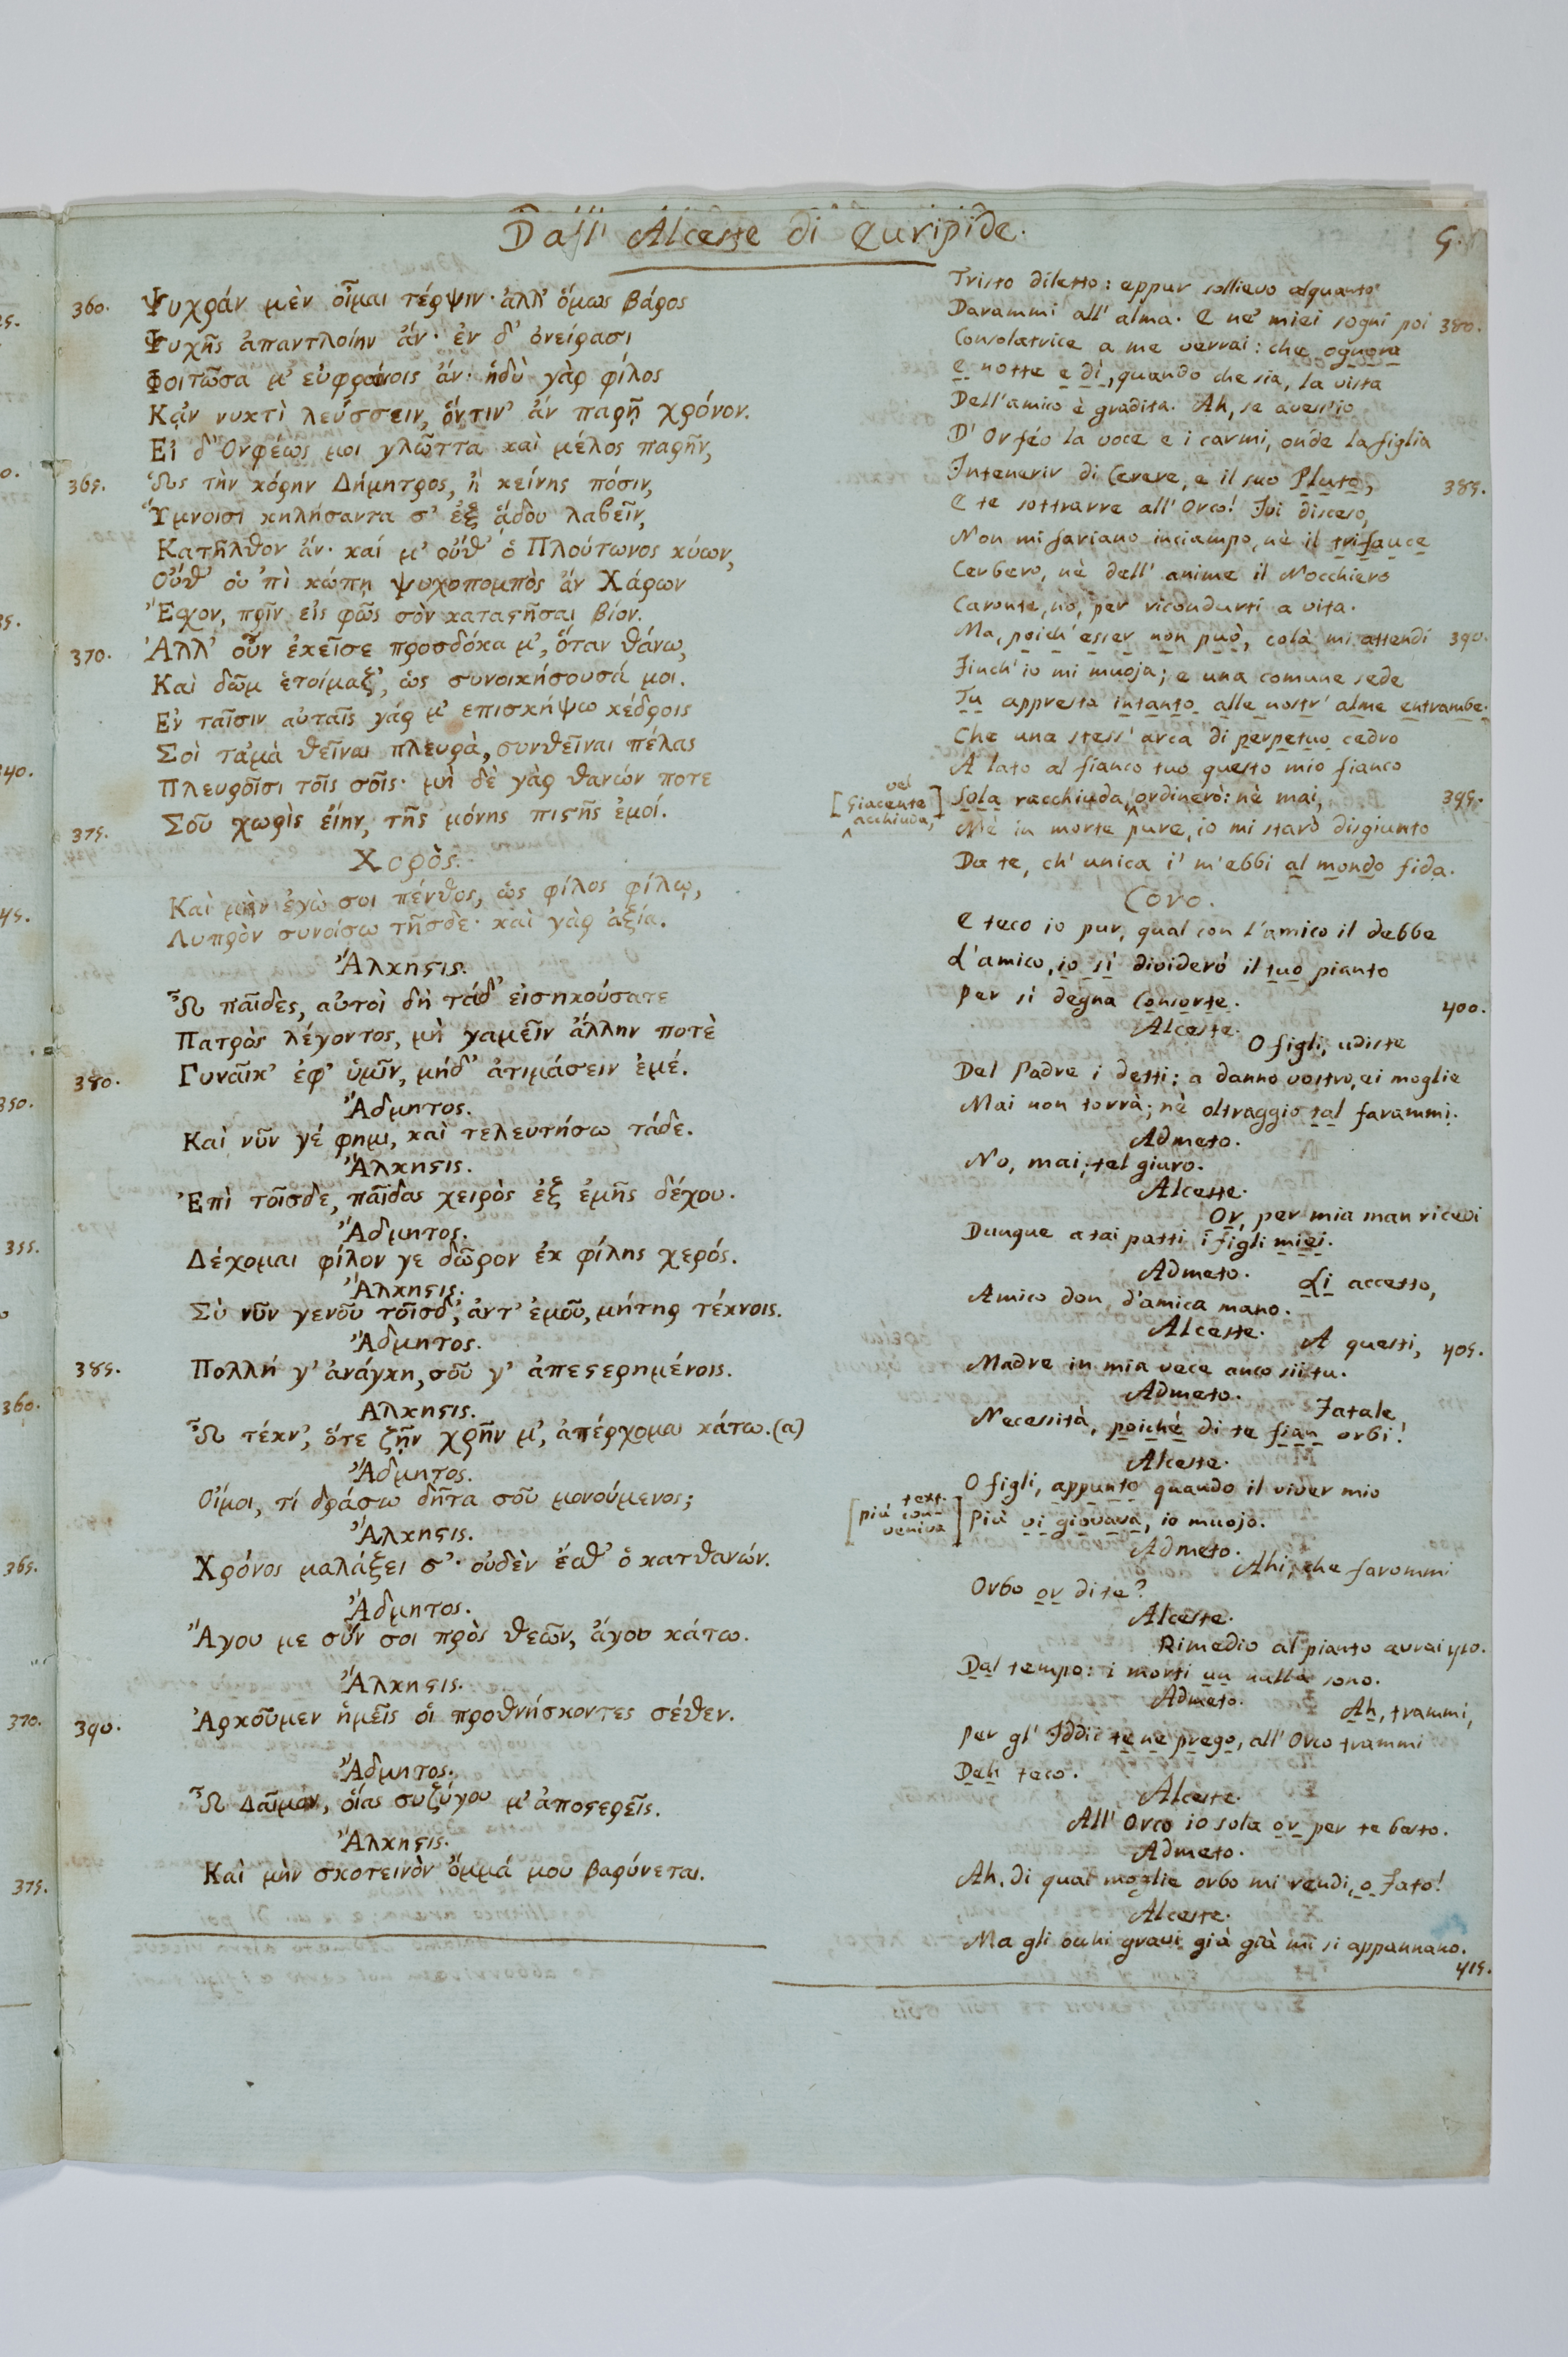 Dall' Alceste di Euripide.
5.
360. Ψυχράν μὲν οἶμαι τέρψιν· ἀλλ' ὅμως βάρος
Ψυχῆς ἀπαντλοίην ἄν· ἐν δ' ὀνείρασι
Φοιτῶσα μ' εὐφραίνοις ἄν· ἡδὺ γὰρ φίλος
Κᾀν νυκτὶ λεύσσειν, ὅντιν' ἄν παρῇ χρόνον.
Εἰ δ' Ὀρφέως μοι γλῶττα καὶ μέλος παρῆν,
365. Ὡς τὴν κόρην Δήμητρος, ἢ κείνης πόσιν,
Ὕμνοισι κηλήσαντα σ' ἐξ ᾅδου λαβεῖν,
Κατῆλθον ἄν· καί μ' οὔθ' ὁ Πλούτωνος κύων,
Οὔθ' οὑ 'πὶ κώπῃ ψυχοπομπὸς ἄν Χάρων
Ἔσχον, πρῖν εἰς φῶς σὸν καταϛῆσαι βίον.
370. Ἀλλ' οὖν ἐκεῖσε προσδόκα μ', ὅταν θάνω,
Καὶ δῶμ ἑτοίμαζ', ὡς συνοικήσουσά μοι.
Ἐν ταῖσιν αὐταῖς γάρ μ' επισκήψω κέδροις
Σοὶ τἀμὰ θεῖναι πλευρὰ, συνθεῖναι πέλας
Πλευροῖσι τοῖς σοῖς· μὴ δὲ γὰρ θανών ποτε
375. Σοῦ χωρὶς εἴην, τῆς μόνης πιϛῆς ἐμοί.
Χορὸς.
Καὶ μὴν ἐγὼ σοι πένθος, ὡς φίλος φίλῳ,
Λυπρὸν συνοίσω τῆσδε· καὶ γὰρ ἀξία.
Ἄλκηϛις.
Ὦ παῖδες, αὐτοὶ δὴ τάδ' εἰσηκούσατε
Πατρὸς λέγοντος, μὴ γαμεῖν ἄλλην ποτὲ
380. Γυναῖκ' ἐφ' ὑμῖν, μήδ' ἀτιμάσειν ἐμέ.
Ἄδμητος.
Καὶ νῦν γέ φημι, καὶ τελευτήσω τάδε.
Ἄλκηϛις.
Ἐπὶ τοῖσδε, παῖδας χειρὸς ἐξ ἐμῆς δέχου.
Ἄδμητος.
Δέχομαι φίλον γε δῶρον ἐκ φίλης χερός.
Ἄλκηϛις.
Σὺ νῦν γενοῦ τοῖσδ', ἀντ' ἐμοῦ, μήτηρ τέκνοις.
Ἄδμητος.
385. Πολλή γ' ἀνάγκη, σοῦ γ' ἀπεϛερημένοις.
Αλκηϛις.
Ὦ τέκν', ὅτε ζῇν χρῆν μ', ἀπέρχομαι κάτω. (a)
Ἄδμητος.
Οἴμοι, τί δράσω δῆτα σοῦ μονούμενος;
Ἄλκηϛις.
Χρόνος μαλάξει σ'· οὐδὲν ἔσθ' ὁ κατθανών.
Ἄδμητος.
Ἄγου με σύν σοι πρὸς θεῶν, ἄγου κάτω.
Ἄλκηϛις.
390. Ἀρκοῦμεν ἡμεῖς οἱ προθνήσκοντες σέθεν.
Ἄδμητος.
Ὦ Δαῖμον, οἵας συζύγου μ' ἀποϛερεῖς.
Ἄλκηϛις.
Καὶ μὴν σκοτεινὸν ὄμμά μου βαρύνεται.
Tristo diletto: eppur sollievo alquanto
Darammi all' alma. E ne' miei sogni poi 380.
Consolatrice a me verrai: che ognora
E notte e dì, quando che sia, la vista
Dell'amico è gradita. Ah, se avess'io
D' Orféo la voce e i carmi, onde la figlia
Intenerir di Cerere, e il suo Pluto, 385.
E te sottrarre all' Orco! Ivi disceso,
Non mi fariano inciampo, nè il trifauce
Cerbero, nè dell' anime il Nocchiero
Caronte, nò, per ricondurti a vita.
Ma, poich' esser non può, colà mi attendi 390.
Finch' io mi muoja; e una comune sede
Tu appresta intanto alle nostr' alme entrambe.
Che una stess' arca di perpetuo cedro
A lato al fianco tuo questo mio fianco
[vel Giacente acchiuda,]
Sola racchiuda, ordinerò: nè mai, 395.
Nè in morte pure, io mi starò disgiunto
Da te, ch' unica i' m'ebbi al mondo fida.
Coro.
E teco io pur, qual con l'amico il debbe
L'amico, io sì dividerò il tuo pianto
Per sì degna Consorte. 400.
Alceste.
O figli, udiste
Del Padre i detti: a danno vostro, ei moglie
Mai non torrà; nè oltraggio tal farammi.
Admeto.
No, mai; tel giuro.
Alceste.
Or, per mia man ricevi
Dunque a tai patti i figli miei.
Admeto.
Li accetto,
Amico don d'amica mano.
Alceste.
A questi, 405.
Madre in mia vece anco sii tu.
Admeto.
Fatale
Necessità, poiché di te fian orbi!
Alceste.
O figli, appunto quando il viver mio
[text. più conveniva]
Più vi giovava, io muojo.
Admeto.
Ahi, che farommi
Orbo or di te?
Alceste.
Rimedio al pianto avrai 410.
Dal tempo: i morti un nulla sono.
Admeto.
Ah, trammi,
Per gl' Iddii te ne prego, all' Orco trammi
Deh teco.
Alceste.
All' Orco io sola or per te basto.
Admeto.
Ah, di qual moglie orbo mi rendi, o Fato!
Alceste.
Ma gli occhi gravi già già mi si appannano.
415.